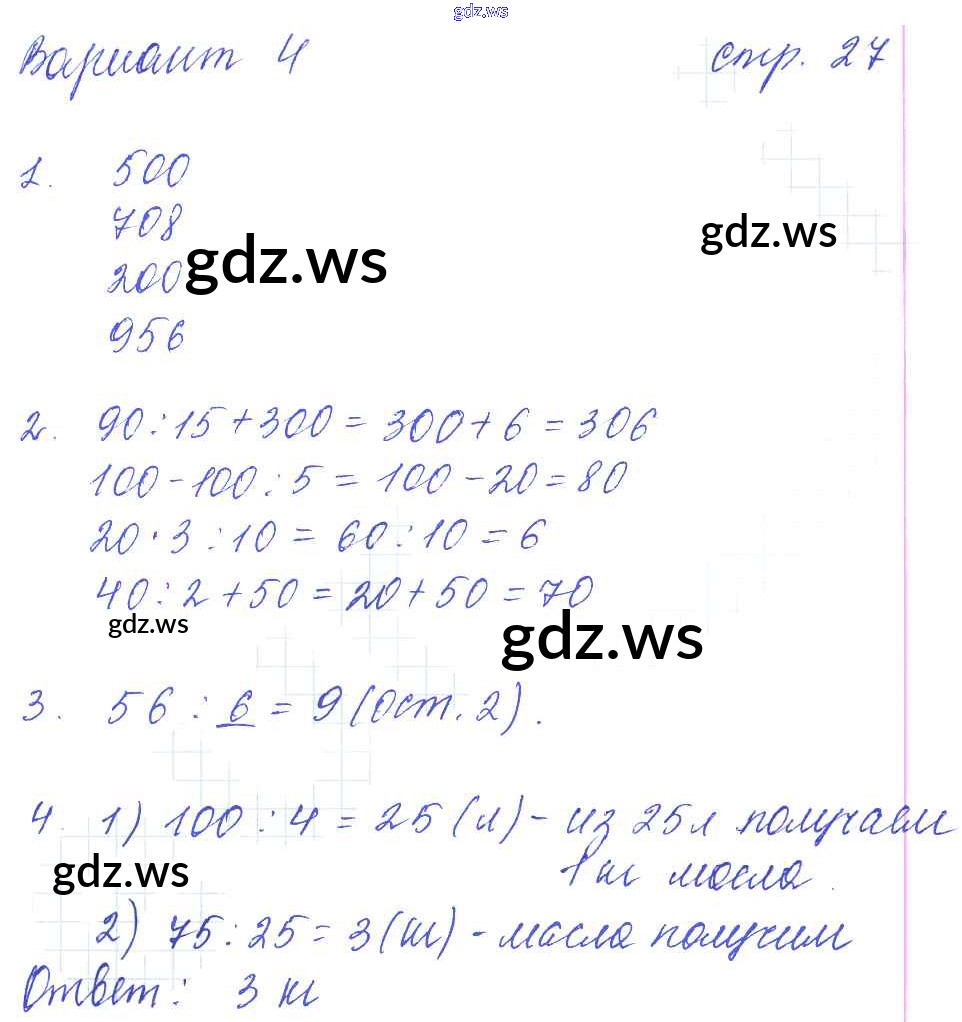 gdz.ws
Вариант 4 стр. 27
1. 500
708
gdz.ws
gdz.ws
200
956
2. 90:15+300=300+6=306
100-100:5=100-20=80
20·3:10=60:10=6
40:2+50=20+50=70
gdz.ws
gdz.ws
3. 56:6=9(ост.2).
4. 1) 100:4=25(л)- из 25л получаем
gdz.ws
1кг масла.
2) 75:25=3(кг)-масла получим
Ответ: 3 кг